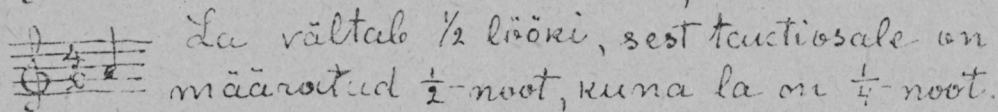 La vältab ½ lööki, sest tauctiosale on
määratud ½-noot, kuna la on ¼-noot.